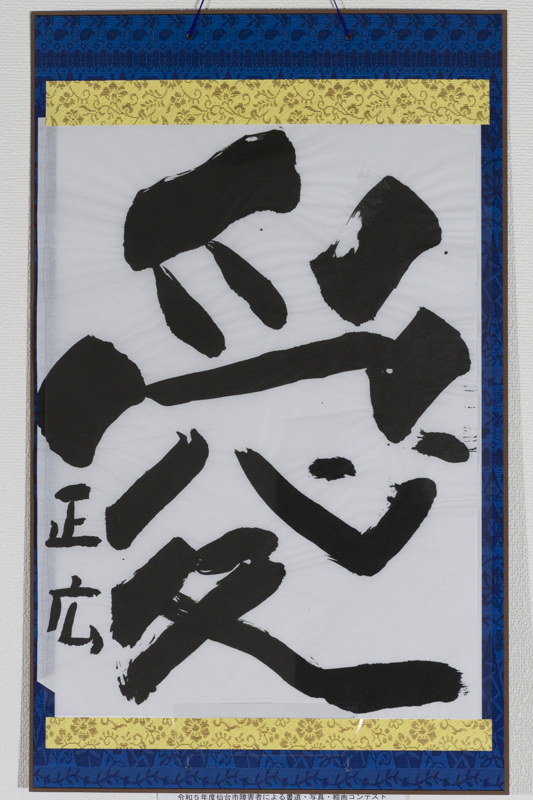 愛
正広
令和5年度仙台市障害者による書道・写真・絵画コンテスト